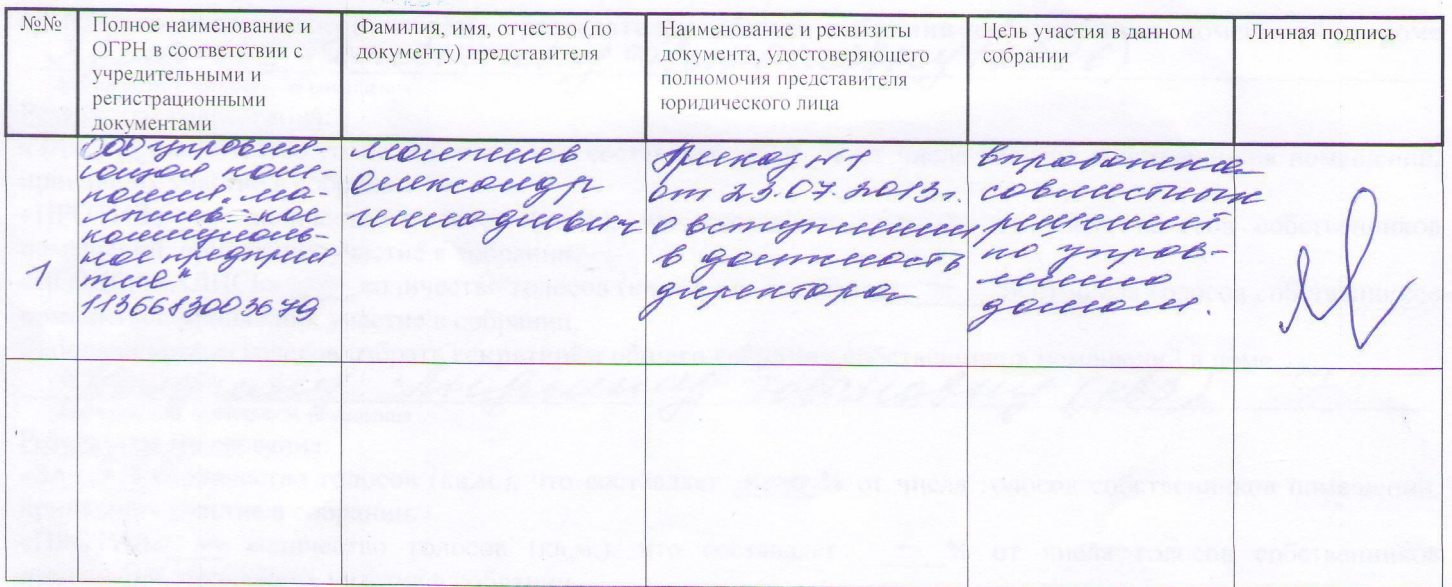 №№
Полное наименование и
ОГРН в соответствии с
учредительными и
регистрационными
документами
Фамилия, имя, отчество (по
документу) представителя
Наименование и реквизиты
документа, удостоверяющего
полномочия представителя
юридического лица
Цель участия в данном
собрании
Личная подпись
1
ООО управля-
ющая ком-
пания
коммуналь-
ное предприя
тие"
Александр
Приказ №1
от 23.07.2013г.
о вступлении
в должность
директора
совместных
решений
по управ-
лению
домом.